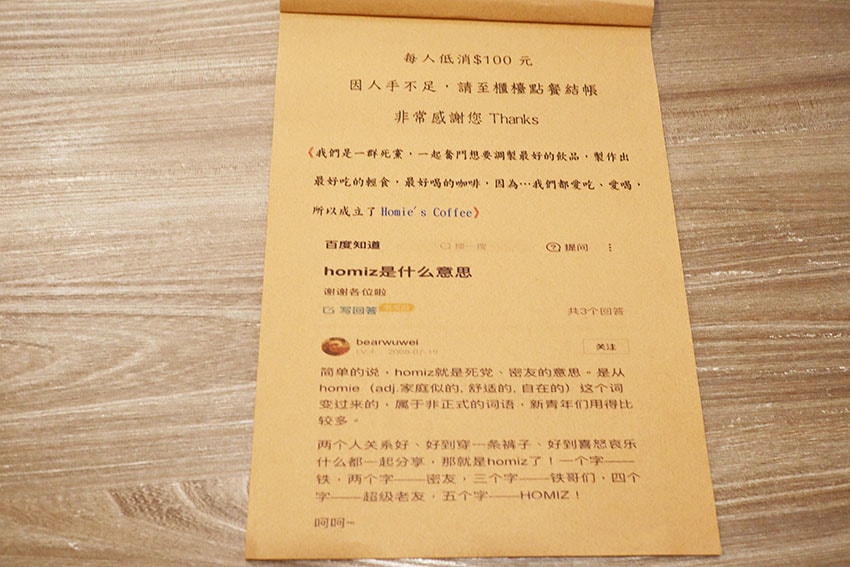 每人低消$100 元
因人手不足，請至櫃檯點餐結帳
非常感謝您 Thanks
《我們是一群死黨，一起奮鬥想要調製最好的飲品，製作出
最好吃的輕食，最好喝的咖啡，因為…我們都愛吃、愛喝，
所以成立了 Homie's Coffee》
百度知道 搜一搜 提问
homiz是什么意思
谢谢各位啦
写回答 共3个回答
bearwuwei 关注
简单的说，homiz就是死党、密友的意思。是从
homie（adj.家庭似的, 舒适的, 自在的）这个词
变过来的，属于非正式的词语，新青年们用得比
较多。
两个人关系好、好到穿一条裤子、好到喜怒哀乐
什么都一起分享，那就是homiz了！一个字——
铁，两个字——密友，三个字——铁哥们，四个
字——超级老友，五个字——HOMIZ！
呵呵~